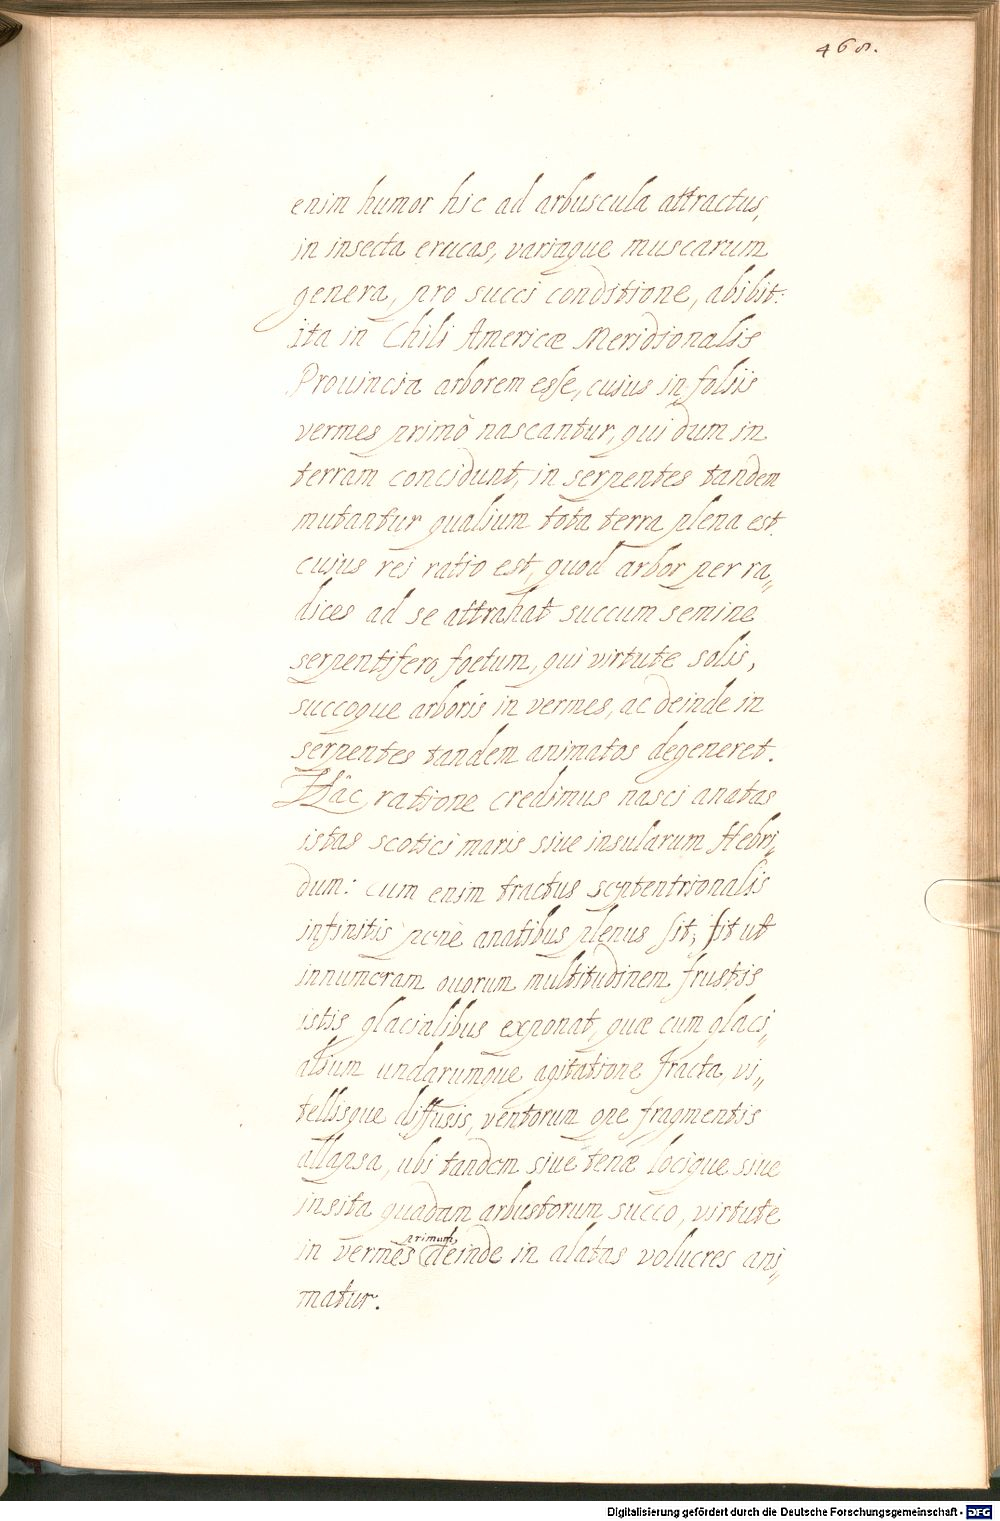 468.
enim humor hic ad arbuscula attractus,
in insecta erucas, variaque muscarum
genera, pro succi conditione, abibit:
ita in Chili Americæ Meridionalis
Prouincia arborem esse, cujus in folijs
vermes primò nascantur, qui dum in
terram concidunt, in serpentes tandem
mutantur qualium tota terra plena est.
cujus rei ratio est, quod arbor per ra„
dices ad se attrahat succum semine
serpentifero foetum, qui virtute solis,
succoque arboris in vermes, ac deinde in
serpentes tandem animatos degeneret.
Hâc ratione credimus nasci anatas
istas scotici maris siue insularum Hebri„
dum: cum enim tractus septentrionalis
infinitis penè anatibus plenus sit; fit ut
innumeram ouorum multitudinem frustis
istis glacialibus exponat, quæ cum glaci„
alium undarumque agitatione fracta, vi„
tellisque diffusis, ventorum ope fragmentis
allapsa, ubi tandem siue tenæ locique siue
insita quadam arbustorum succo, virtute
in vermes primum deinde in alatas volucres ani„
matur.
Digitalisierung gefördert durch die Deutsche Forschungsgemeinschaft - DFG